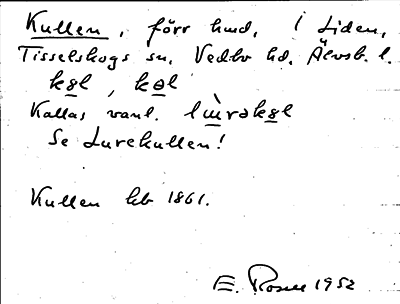 Kullen, förr hmd, i Liden,
Tisselskogs sn, Vedbo hd, Älvsb. l.
kɞl, kəl
Kallas vanl. lùrəkɞl
Se Lurekullen!
Kullen hb 1861.
E. Rosell 1952